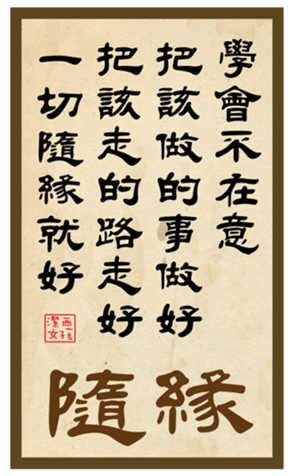 學會不在意
把該做的事做好
把該走的路走好
一切隨緣就好
隨緣